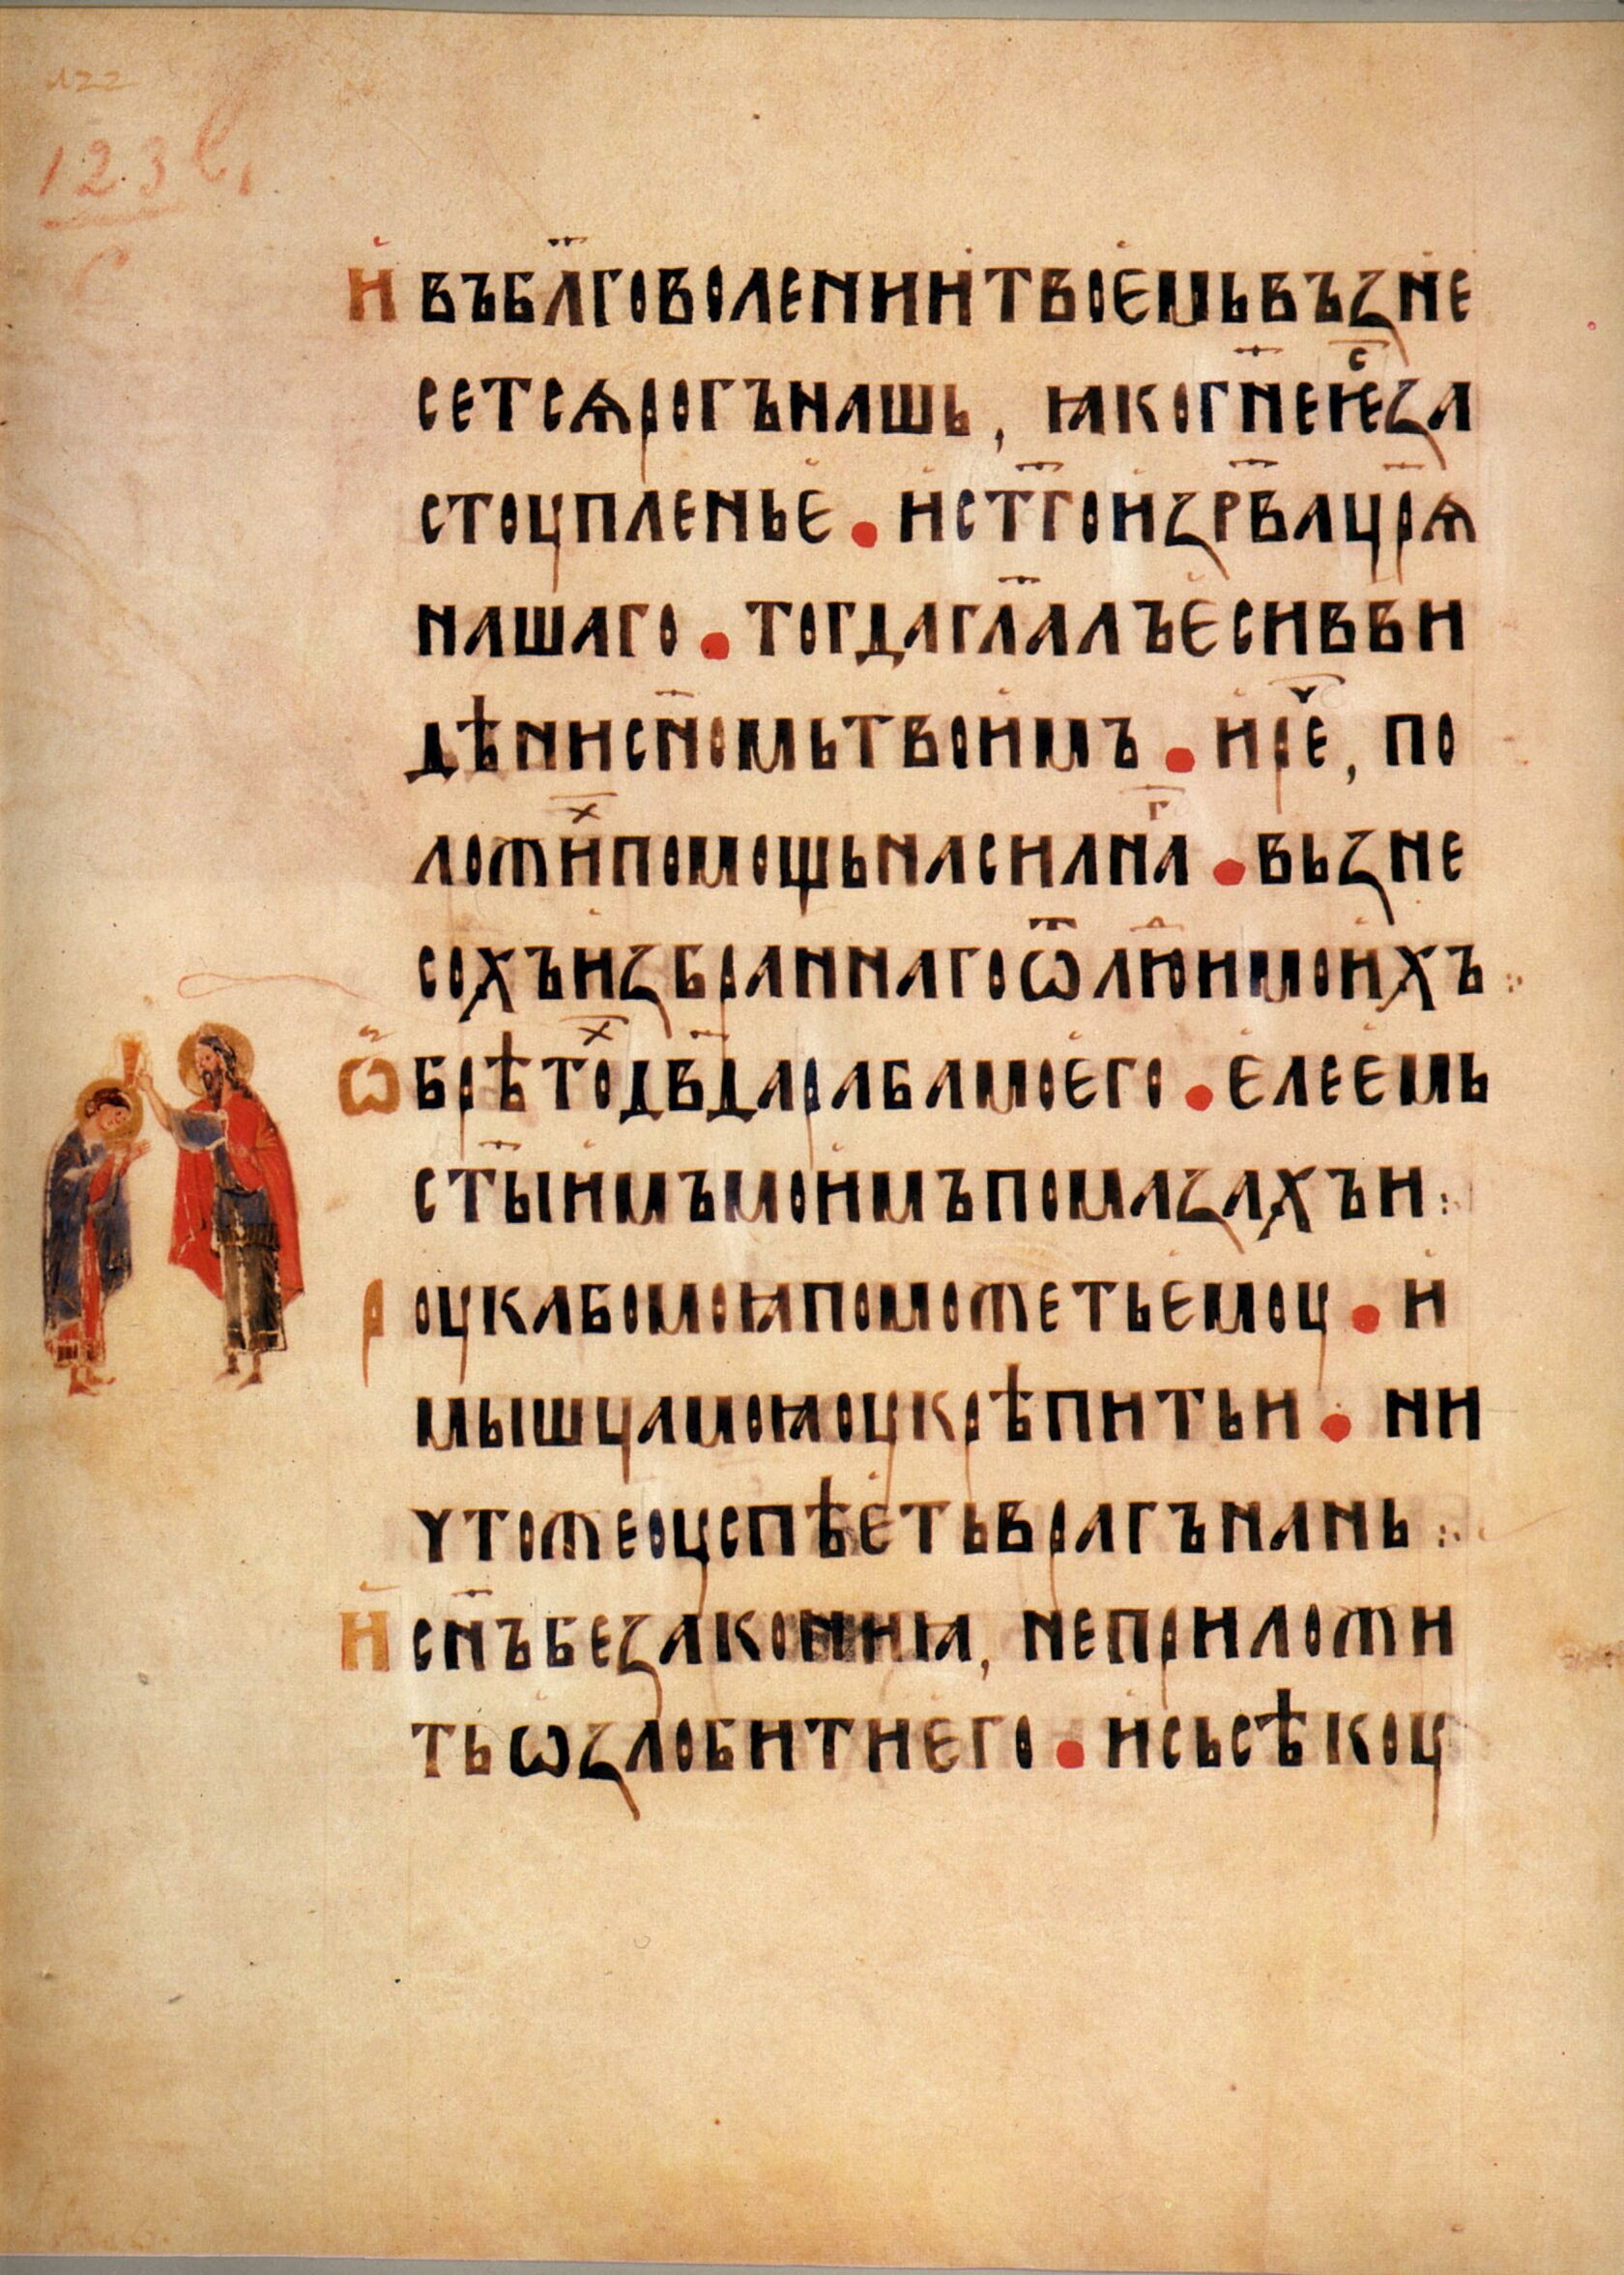 122
123 в.
И въбл҃говоленииитвоѥмьвъꙁне
сетсѧрогънашь, ꙗкогн҃еѥⷭ҇ꙁа
стоупленьѥ • исто҃гоиꙁрв҃ацр҃ѧ
нашаго • тогдагл҃алъѥсивви
дѣнисн҃омьтвоимъ • ирⷱ҇е, по
ложиⷯпомощьнасилнаⷢ • вьꙁне
сохъиꙁбраннагоѿлюⷣимоихъ :·
Ѡбрѣтоⷯдв҃дарабамоѥго • ѥлеѥмь
ст҃ыимъмоимъпомаꙁахъи :·
Роукабомоꙗпоможетьѥмоу • и
мышцамоꙗоукрѣпитьи • ни
чтожеоуспѣѥтьврагънань :·
И сн҃ъбеꙁаконниꙗ, неприложи
тьѡꙁлобитиѥго • исьсѣкоу